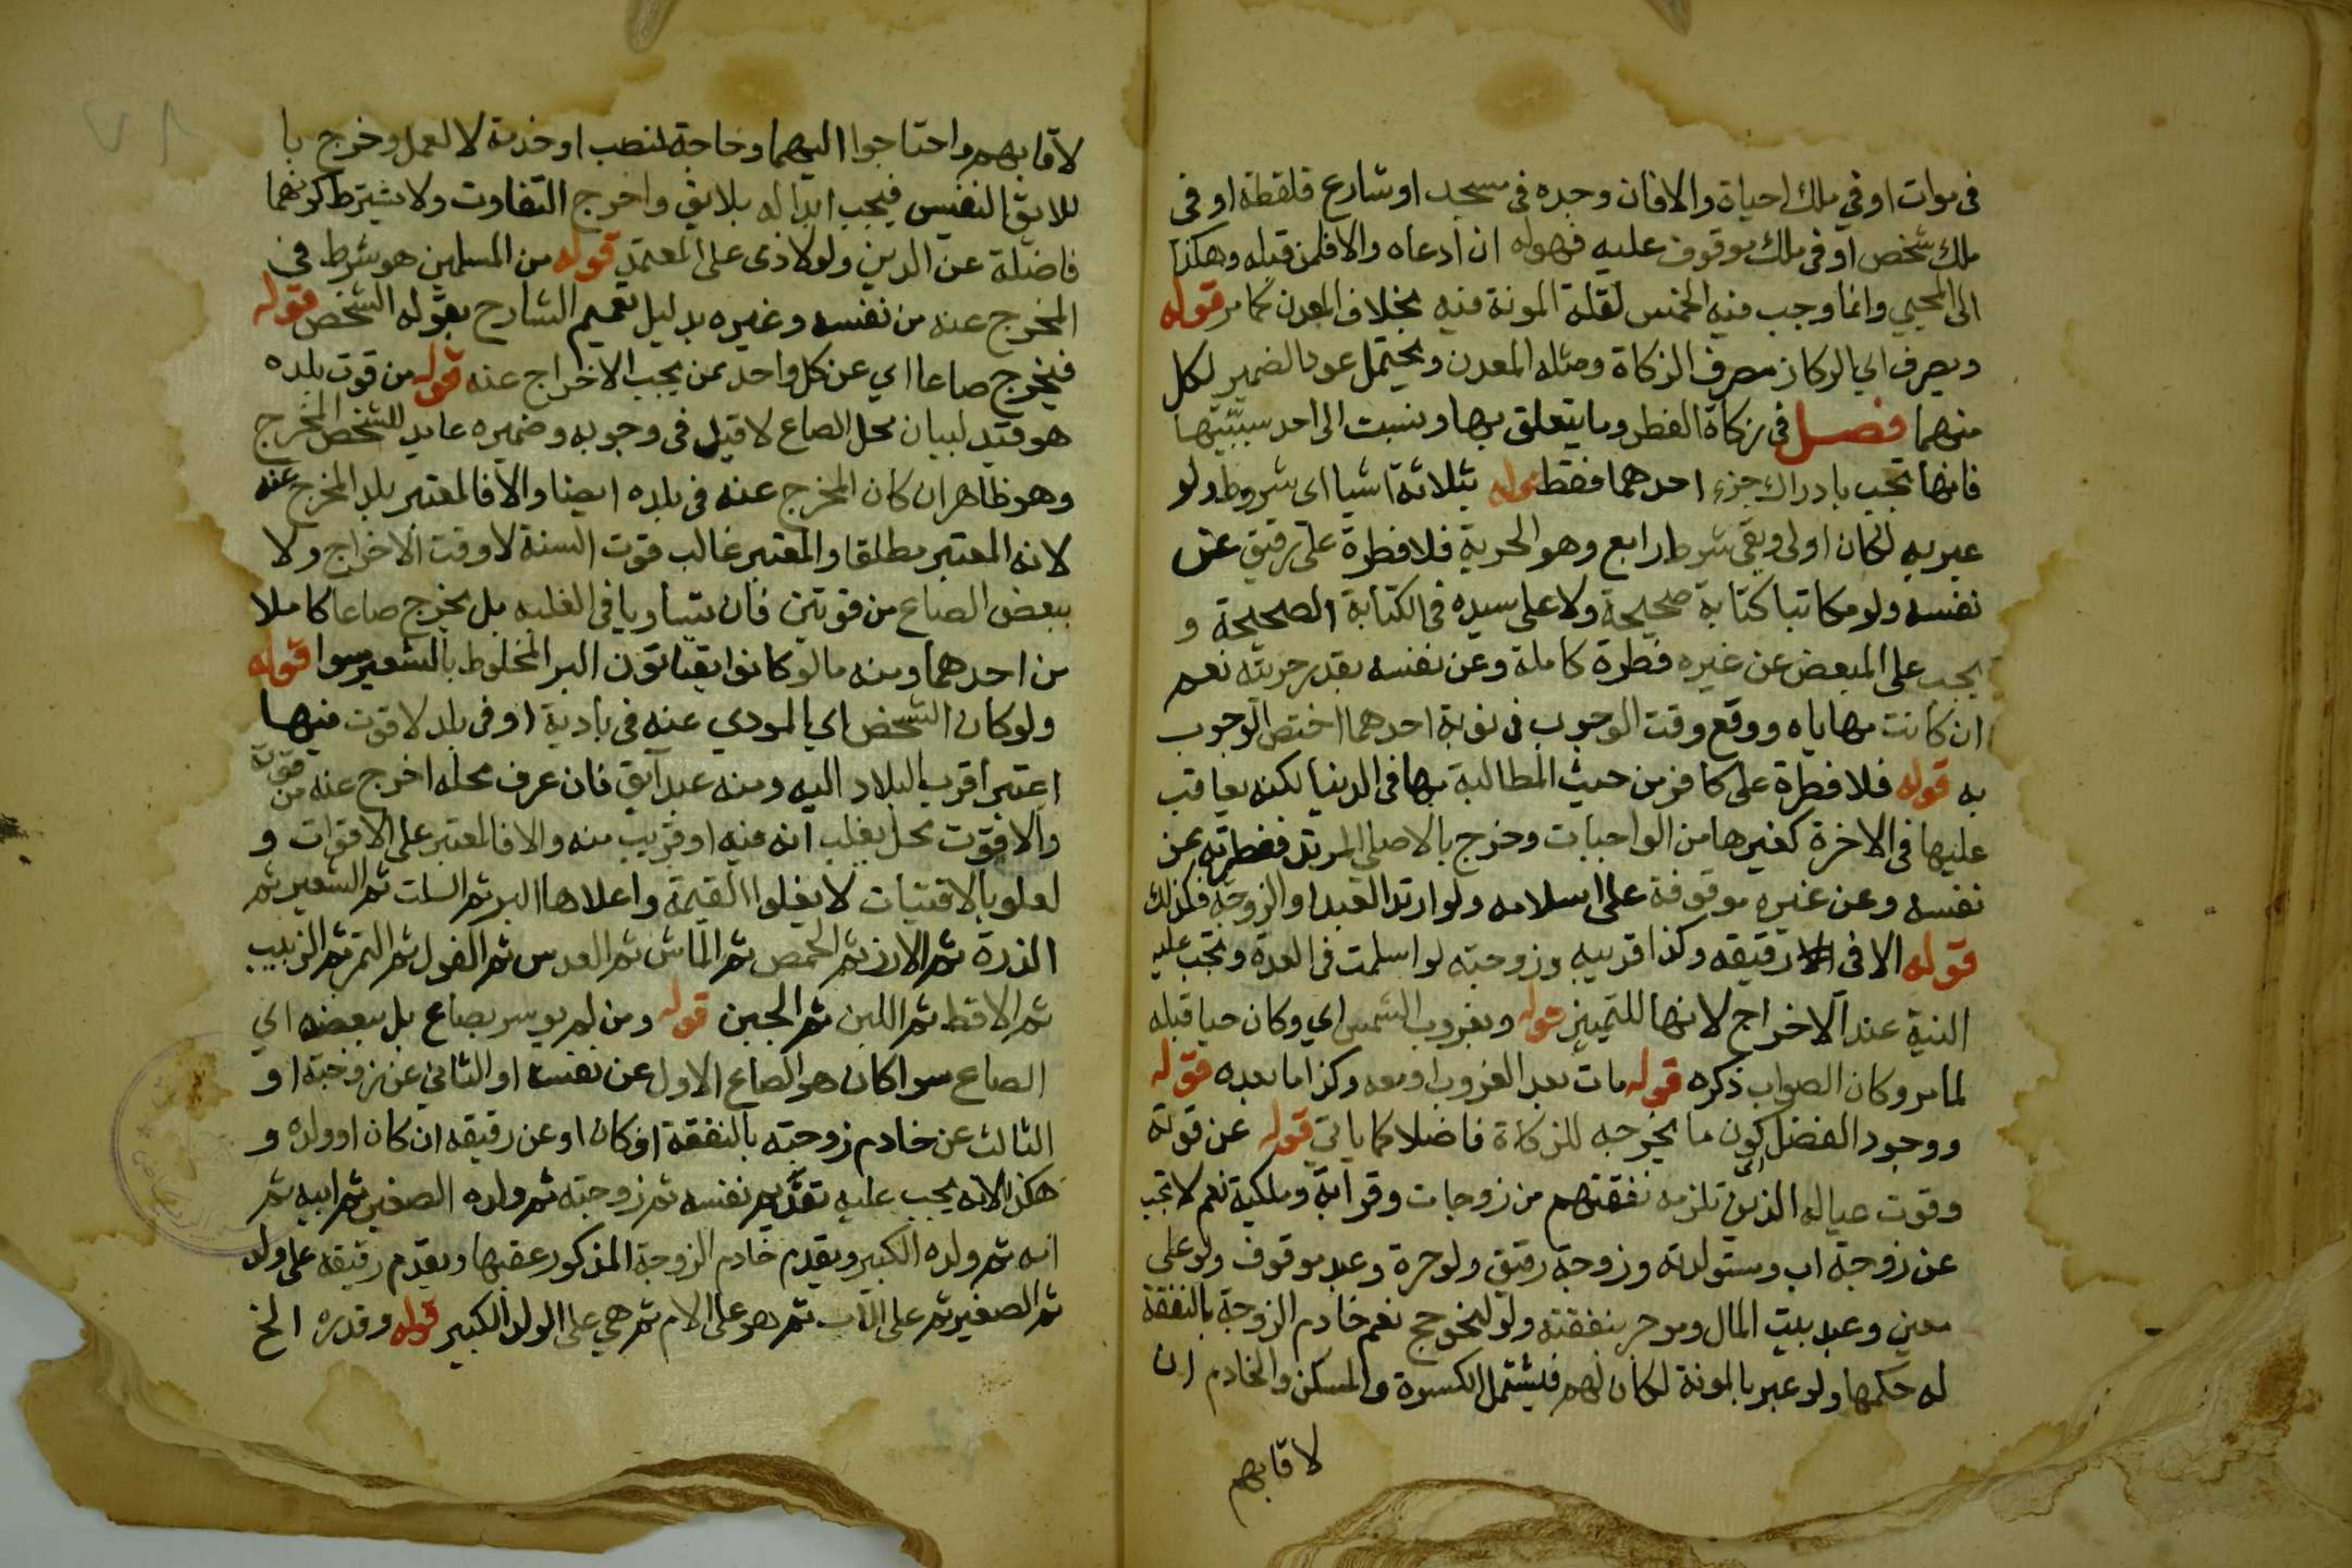 في موات او في ملك احياه والا فان وجده في مسجد او شارع فلقطة او في
ملك شخص او في ملك موقوف عليه فهو له ان ادعاه والا فلمن قبله وهكذا
الى المحيي وانما وجب فيه الخمس لقلة المونة فيه بخلاف المعدن كما مر قوله
ويصرف اي الركاز مصرف الزكاة ومثله المعدن ويحتمل عود الضمير لكل
منهما فصل في زكاة الفطر وما يتعلق بها ونسبت الى احد سببيها
فانها تجب بادراك جزء احدهما فقط قوله بثلاثة اشيا اي شروط ولو
عبر به لكان اولى وبقي شرط رابع وهو الحرية فلا فطرة على رقيق عن
نفسه ولو مكاتبا كتابة صحيحة ولا على سيده في الكتابة الصحيحة و
يجب على المبعض عن غيره فطرة كاملة وعن نفسه بقدر حريته نعم
ان كانت مهاياه ووقع وقت الوجوب في نوبة احدهما اختص الوجوب
به قوله فلا فطرة على كافر من حيث المطالبة بها في الدنيا لكنه يعاقب
عليها في الاخرة كغيرها من الواجبات وخرج بالاصلي المرتد ففطرته عن
نفسه وعن غيره موقوفة على اسلامه ولو ارتد العبد او الزوجة فكذلك
قوله الا في رقيقه وكذا قريبه وزوجته لو اسلمت في العدة وتجب عليه
النية عند الاخراج لانها للتمييز قوله وبغروب الشمس اي وكان حيا قبله
لما مر وكان الصواب ذكره قوله مات بعد الغروب او معه وكذا ما بعده قوله
ووجود الفضل اي كون ما يخرجه للزكاة فاضلا كما ياتي قوله عن قوته
وقوت عياله الذين تلزمه نفقتهم من زوجات وقرابة وملكية نعم لا تجب
عن زوجة اب ومستولدته وزوجة رقيق ولو حرة وعبد موقوف ولو على
معين وعبد بيت المال وموجر بنفقته ولو لنحو حج نعم خادم الزوجة بالنفقة
له حكمها ولو عبر بالمونة لكان لهم فيشمل الكسوة والمسكن والخادم ان
لاقا بهم
لاقا بهم واحتاجوا اليهما وحاجة لمنصب او خدمة لا لعمل وخرج با
للايق النفيس فيجب ابداله بلايق واخرج التفاوت ولا يشترط كونهما
فاضلة عن الدين ولو لادمى على المعتمد قوله من المسلمين هو شرط في
المخرج عنه من نفسه وغيره بدليل تعميم الشارح بقوله الشخص قوله
فيخرج صاعا اي عن كل واحد ممن يجب الاخراج عنه قوله من قوت بلده
هو قيد لبيان محل الصاع لا قيد في وجوبه وضميره عايد للشخص المخرج
وهو ظاهر ان كان المخرج عنه في بلده ايضا والا فالمعتبر بلد المخرج عنه
لانه المعتبر مطلقا والمعتبر غالب قوت السنة لا وقت الاخراج ولا
يبعض الصاع من قوتين فان تساويا في الغلبه بل يخرج صاعا كاملا
من احدهما ومنه ما لو كانوا يقتاتون البر المخلوط بالشعير سوا قوله
ولو كان الشخص اي المودي عنه في بادية او في بلد لا قوت فيها
اعتبر اقرب البلاد اليه ومنه عبد آبق فان عرف محله اخرج عنه من قوته
والا فقوت محل يغلب انه فيه او قريب منه والا فالمعتبر على الاقوات و
لعلو بالاقتيات لا بغلو القيمة واعلاها البر ثم السلت ثم الشعير ثم
الذرة ثم الارز ثم الحمص ثم الماش ثم العدس ثم الفول ثم التمر ثم الزبيب
ثم الاقط ثم اللبن ثم الجبن قوله ومن لم يوسر بصاع بل ببعضه اي
الصاع سوا كان هو الصاع الاول عن نفسه او الثاني عن زوجته او
الثالث عن خادم زوجته بالنفقة ان كان او عن رقيقه ان كان او ولده و
هكذا لانه يجب عليه تقديم نفسه ثم زوجته ثم ولده الصغير ثم ابيه ثم
امه ثم ولده الكبير ويقدم خادم الزوجة المذكور عقبها ويقدم رقيقه على ولد
ثم الصغير ثم على الاب ثم هو على الام ثم هي على الولد الكبير قوله وقدره الخ